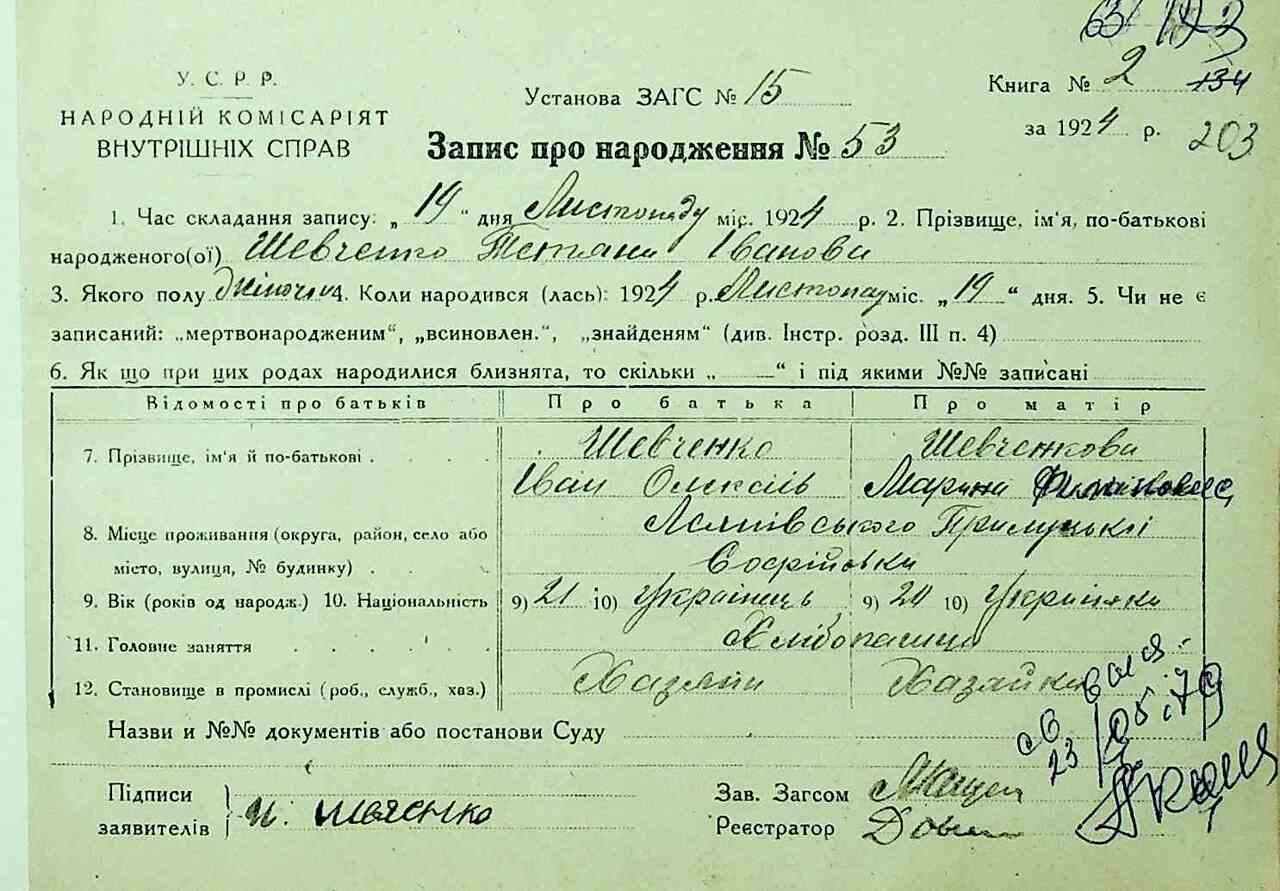 У. С. Р. Р.
НАРОДНІЙ КОМІСАРІЯТ
ВНУТРІШНІХ СПРАВ
Установа ЗАГС № 15
Книга № 2 134
за 1924 р. 203
Запис про народження № 53
1. Час складання запису: „ 19 “ дня Листопаду міс. 1924 р. 2. Прізвище, ім'я, по-батькові
народженого(ої) Шевченко Тетяни Іванови
3. Якого полу 4. Коли народився (лась): 1924 р. Листопад міс. „ 19 “ дня. 5. Чи не є
записаний: „мертвонародженим“, „всиновлен.“, „знайденям“ (див. Інстр. розд. III п. 4)
6. Як що при цих родах народилися близнята, то скільки „ “ і під якими №№ записані
Відомості про батьків Про батька Про матір
7. Прізвище, ім'я й по-батькові . . . . Шевченко Шевченкова
Іван Марина
8. Місце проживання (округа, район, село або
місто, вулиця, № будинку) . . . Софіївка
9. Вік (років од народж.) 10. Національність 9) 21 10) Українець 9) 20 10) Українка
11. Головне заняття . . . . .
12. Становище в промислі (роб., служб., хаз.) Хазяїн Хазяйка
Назви и №№ документів або постанови Суду
Підписи
заявителів
Зав. Загсом
Реєстратор
23